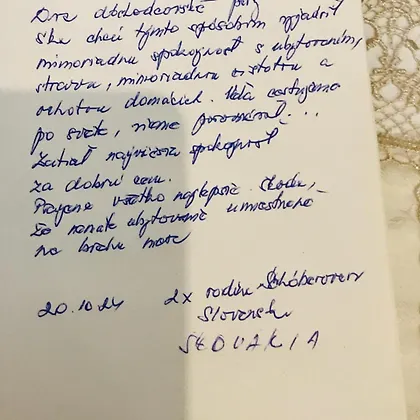 Dve dôchodcovské páry
ske chcú týmto spôsobim vyjadriť
mimoriadnu spokojnosť s ubytovaním,
stravou, mimoriadnu čistotu a
ochotou domácich. Veľa cestujeme
po svete, vieme porovnávať...
Zatiaľ najväčšia spokojnosť
za dobrú cenu.
Prajeme všetko najlepšie. Škoda,
že nemáte ubytovanie umiestnené
na brehu mora
20.10.24 2x rodina Schóberovci
Slovensko
SLOVAKIA